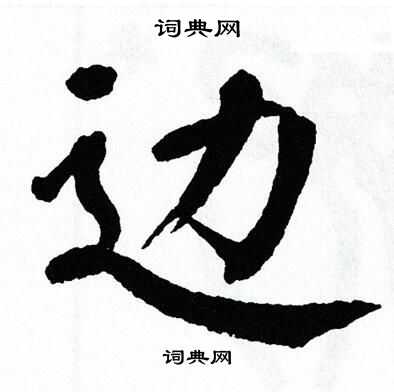 词典网
边
词典网